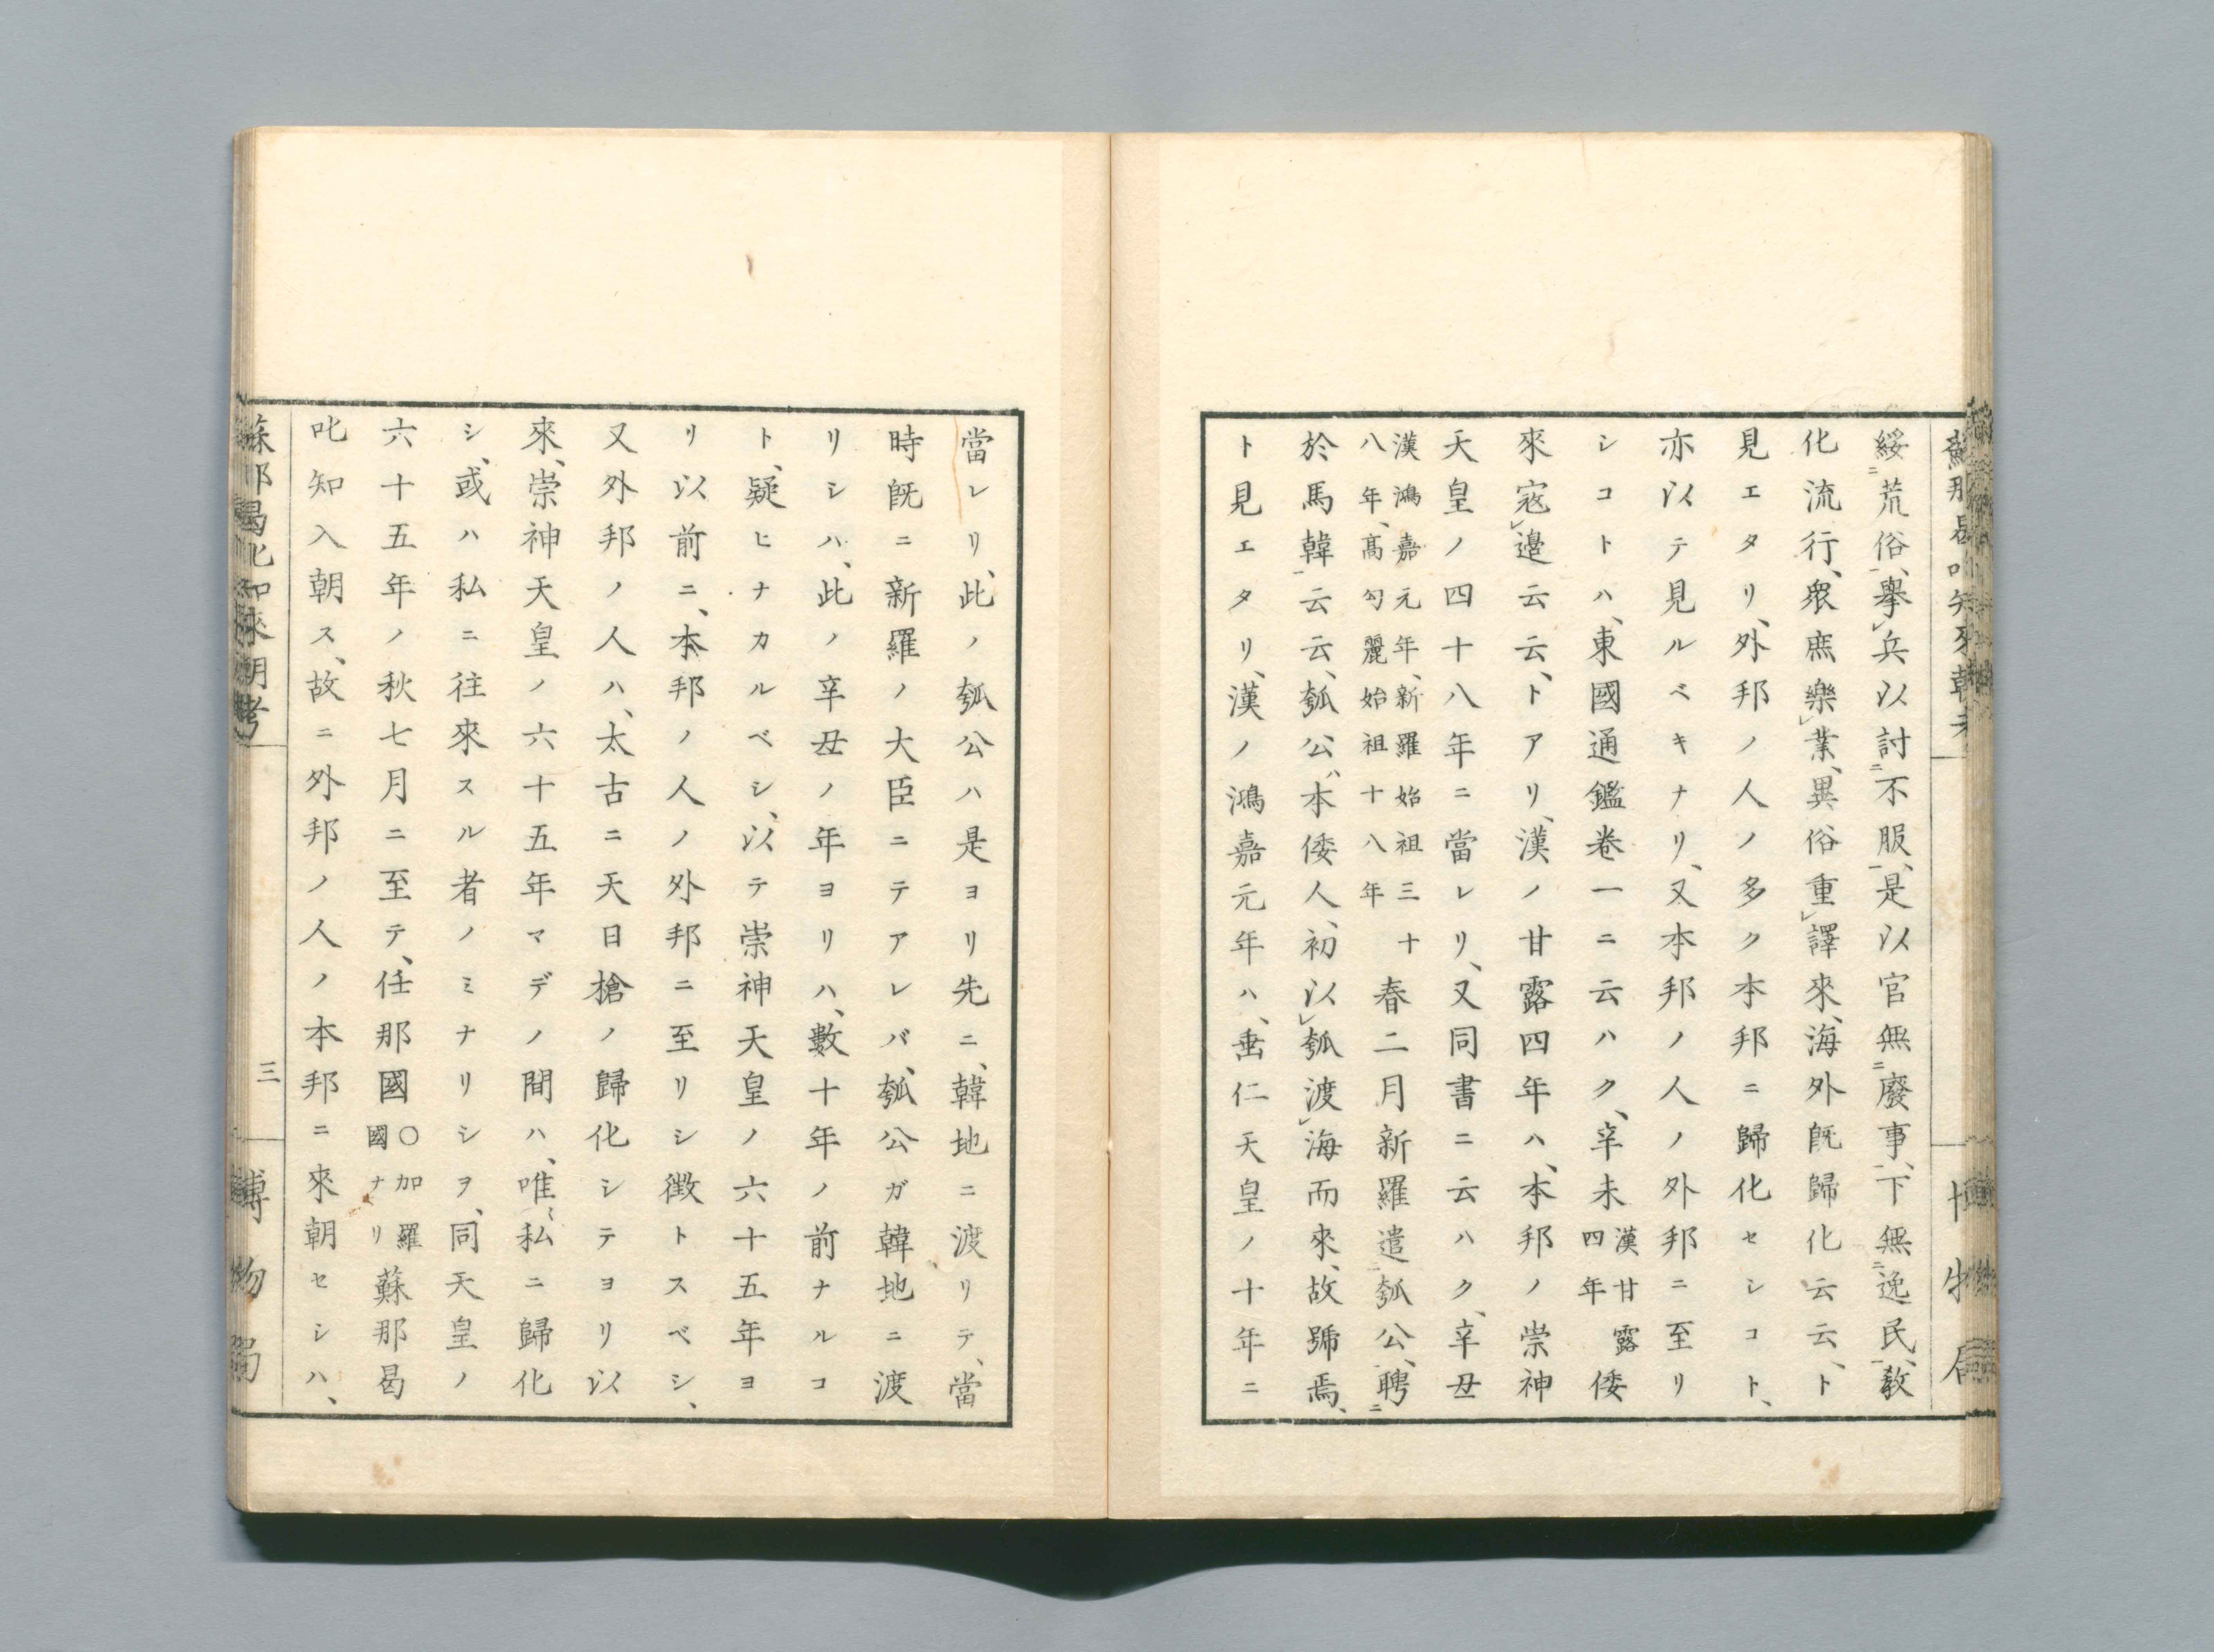 綏荒俗、擧兵以討不服、是以官無廢事、下無逸民、敎
化流行、衆庶樂業、異俗重譯來、海外既歸化云云、ト
見エタリ、外邦ノ人ノ多ク本邦ニ歸化セシコト、
亦以テ見ルベキナリ、又本邦ノ人ノ外邦ニ至リ
シコトハ、東國通鑑卷一ニ云ハク、辛未漢甘露四年倭
來寇邊云云、トアリ、漢ノ甘露四年ハ、本邦ノ崇神
天皇ノ四十八年ニ當レリ、又同書ニ云ハク、辛丑
漢鴻嘉元年、新羅始祖三十八年、高勾麗始祖十八年春二月新羅遣瓠公、聘
於馬韓云云、瓠公、本倭人、初以瓠渡海而來、故號焉、
ト見エタリ、漢ノ鴻嘉元年ハ、垂仁天皇ノ十年ニ
當レリ、此ノ瓠公ハ是ヨリ先ニ、韓地ニ渡リテ、當
時既ニ新羅ノ大臣ニテアレバ、瓠公ガ韓地ニ渡
リシハ、此ノ辛丑ノ年ヨリハ、數十年ノ前ナルコ
ト、疑ヒナカルベシ、以テ崇神天皇ノ六十五年ヨ
リ以前ニ、本邦ノ人ノ外邦ニ至リシ徴トスベシ、
又外邦ノ人ハ、太古ニ天日槍ノ歸化シテヨリ以
來、崇神天皇ノ六十五年マデノ間ハ、唯私ニ歸化
シ、或ハ私ニ往來スル者ノミナリシヲ、同天皇ノ
六十五年ノ秋七月ニ至テ、任那國〇加羅國ナリ蘇那曷
叱知入朝ス、故ニ外邦ノ人ノ本邦ニ來朝セシハ、
蘇那曷叱知來朝考
三
博物局